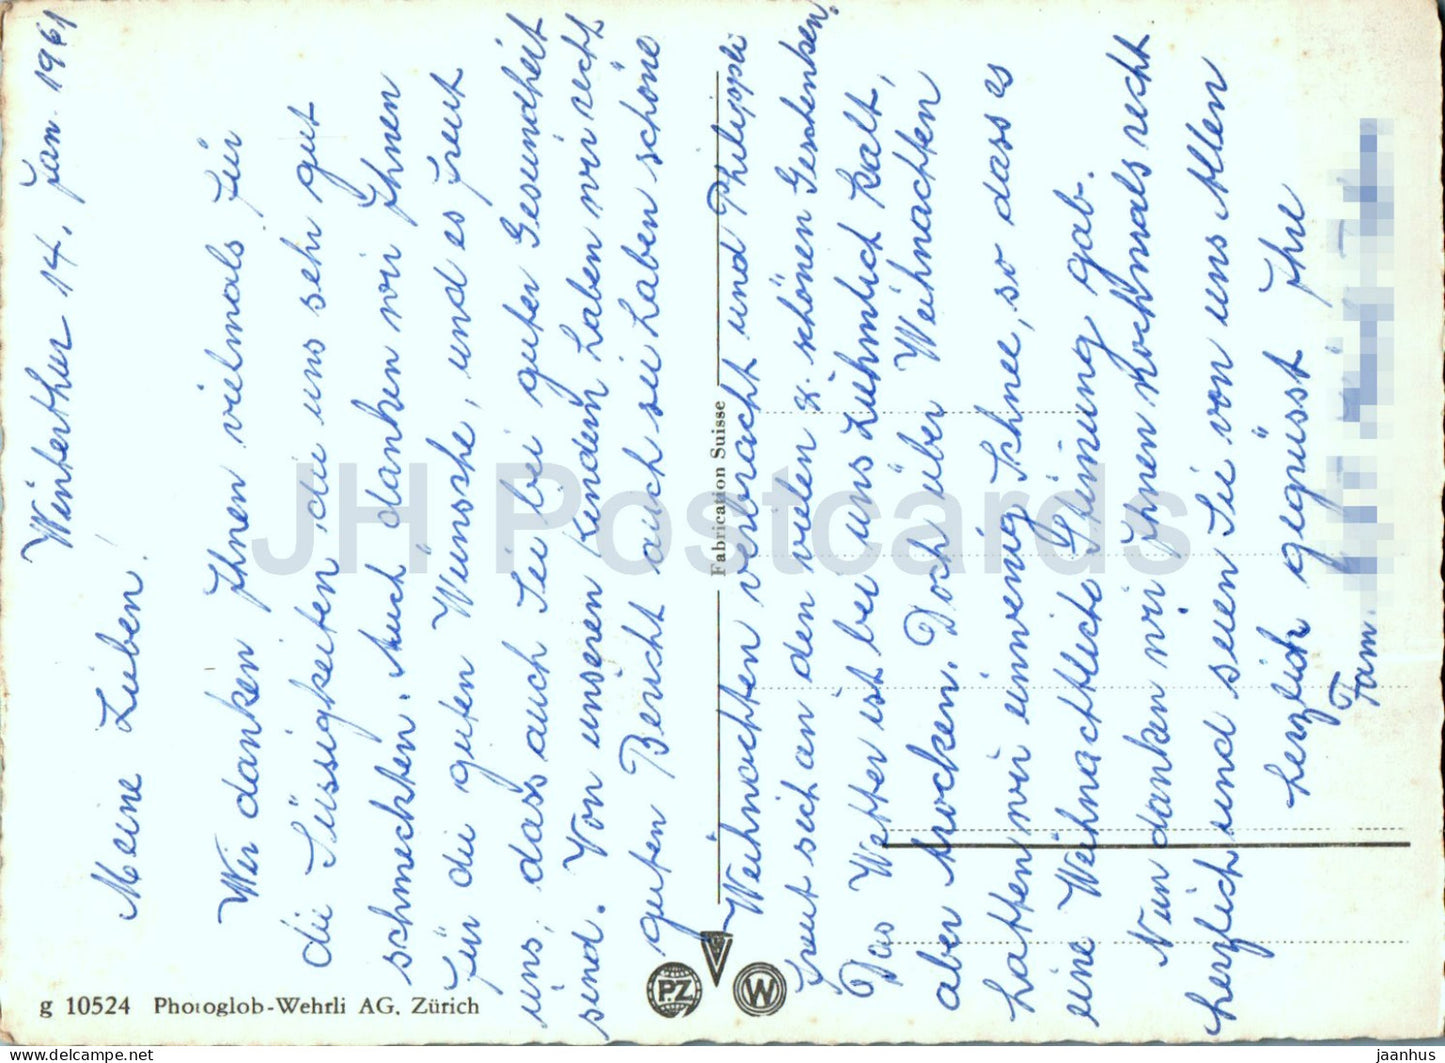 Winterthur 14. Jan. 1961
Meine Lieben!
Wir danken Ihnen vielmals für
die Süssigkeiten die uns sehr gut
schmeckten. Auch danken wir Ihnen
für die guten Wünsche, und es freut
uns, dass auch Sie bei guter Gesundheit
sind. Von unseren Kindern haben wir recht
guten Bericht auch sie haben schöne
Weihnachten verbracht und Philippli
freut sich an den vielen z. schönen Geschenken.
Das Wetter ist bei uns ziehmlich kalt,
aber trocken. Doch über Weihnachten
hatten wir ein wenig Schnee, so dass es
eine Weihnachtliche Stimmung gab.
Nun danken wir Ihnen nochmals recht
herzlich und seien Sie von uns Allen
herzlich gegrüsst Ihre
Fam.
Fabrication Suisse
PZ W
g 10524 Photoglob-Wehrli AG, Zürich
JH Postcards
www.delcampe.net
jaanhus